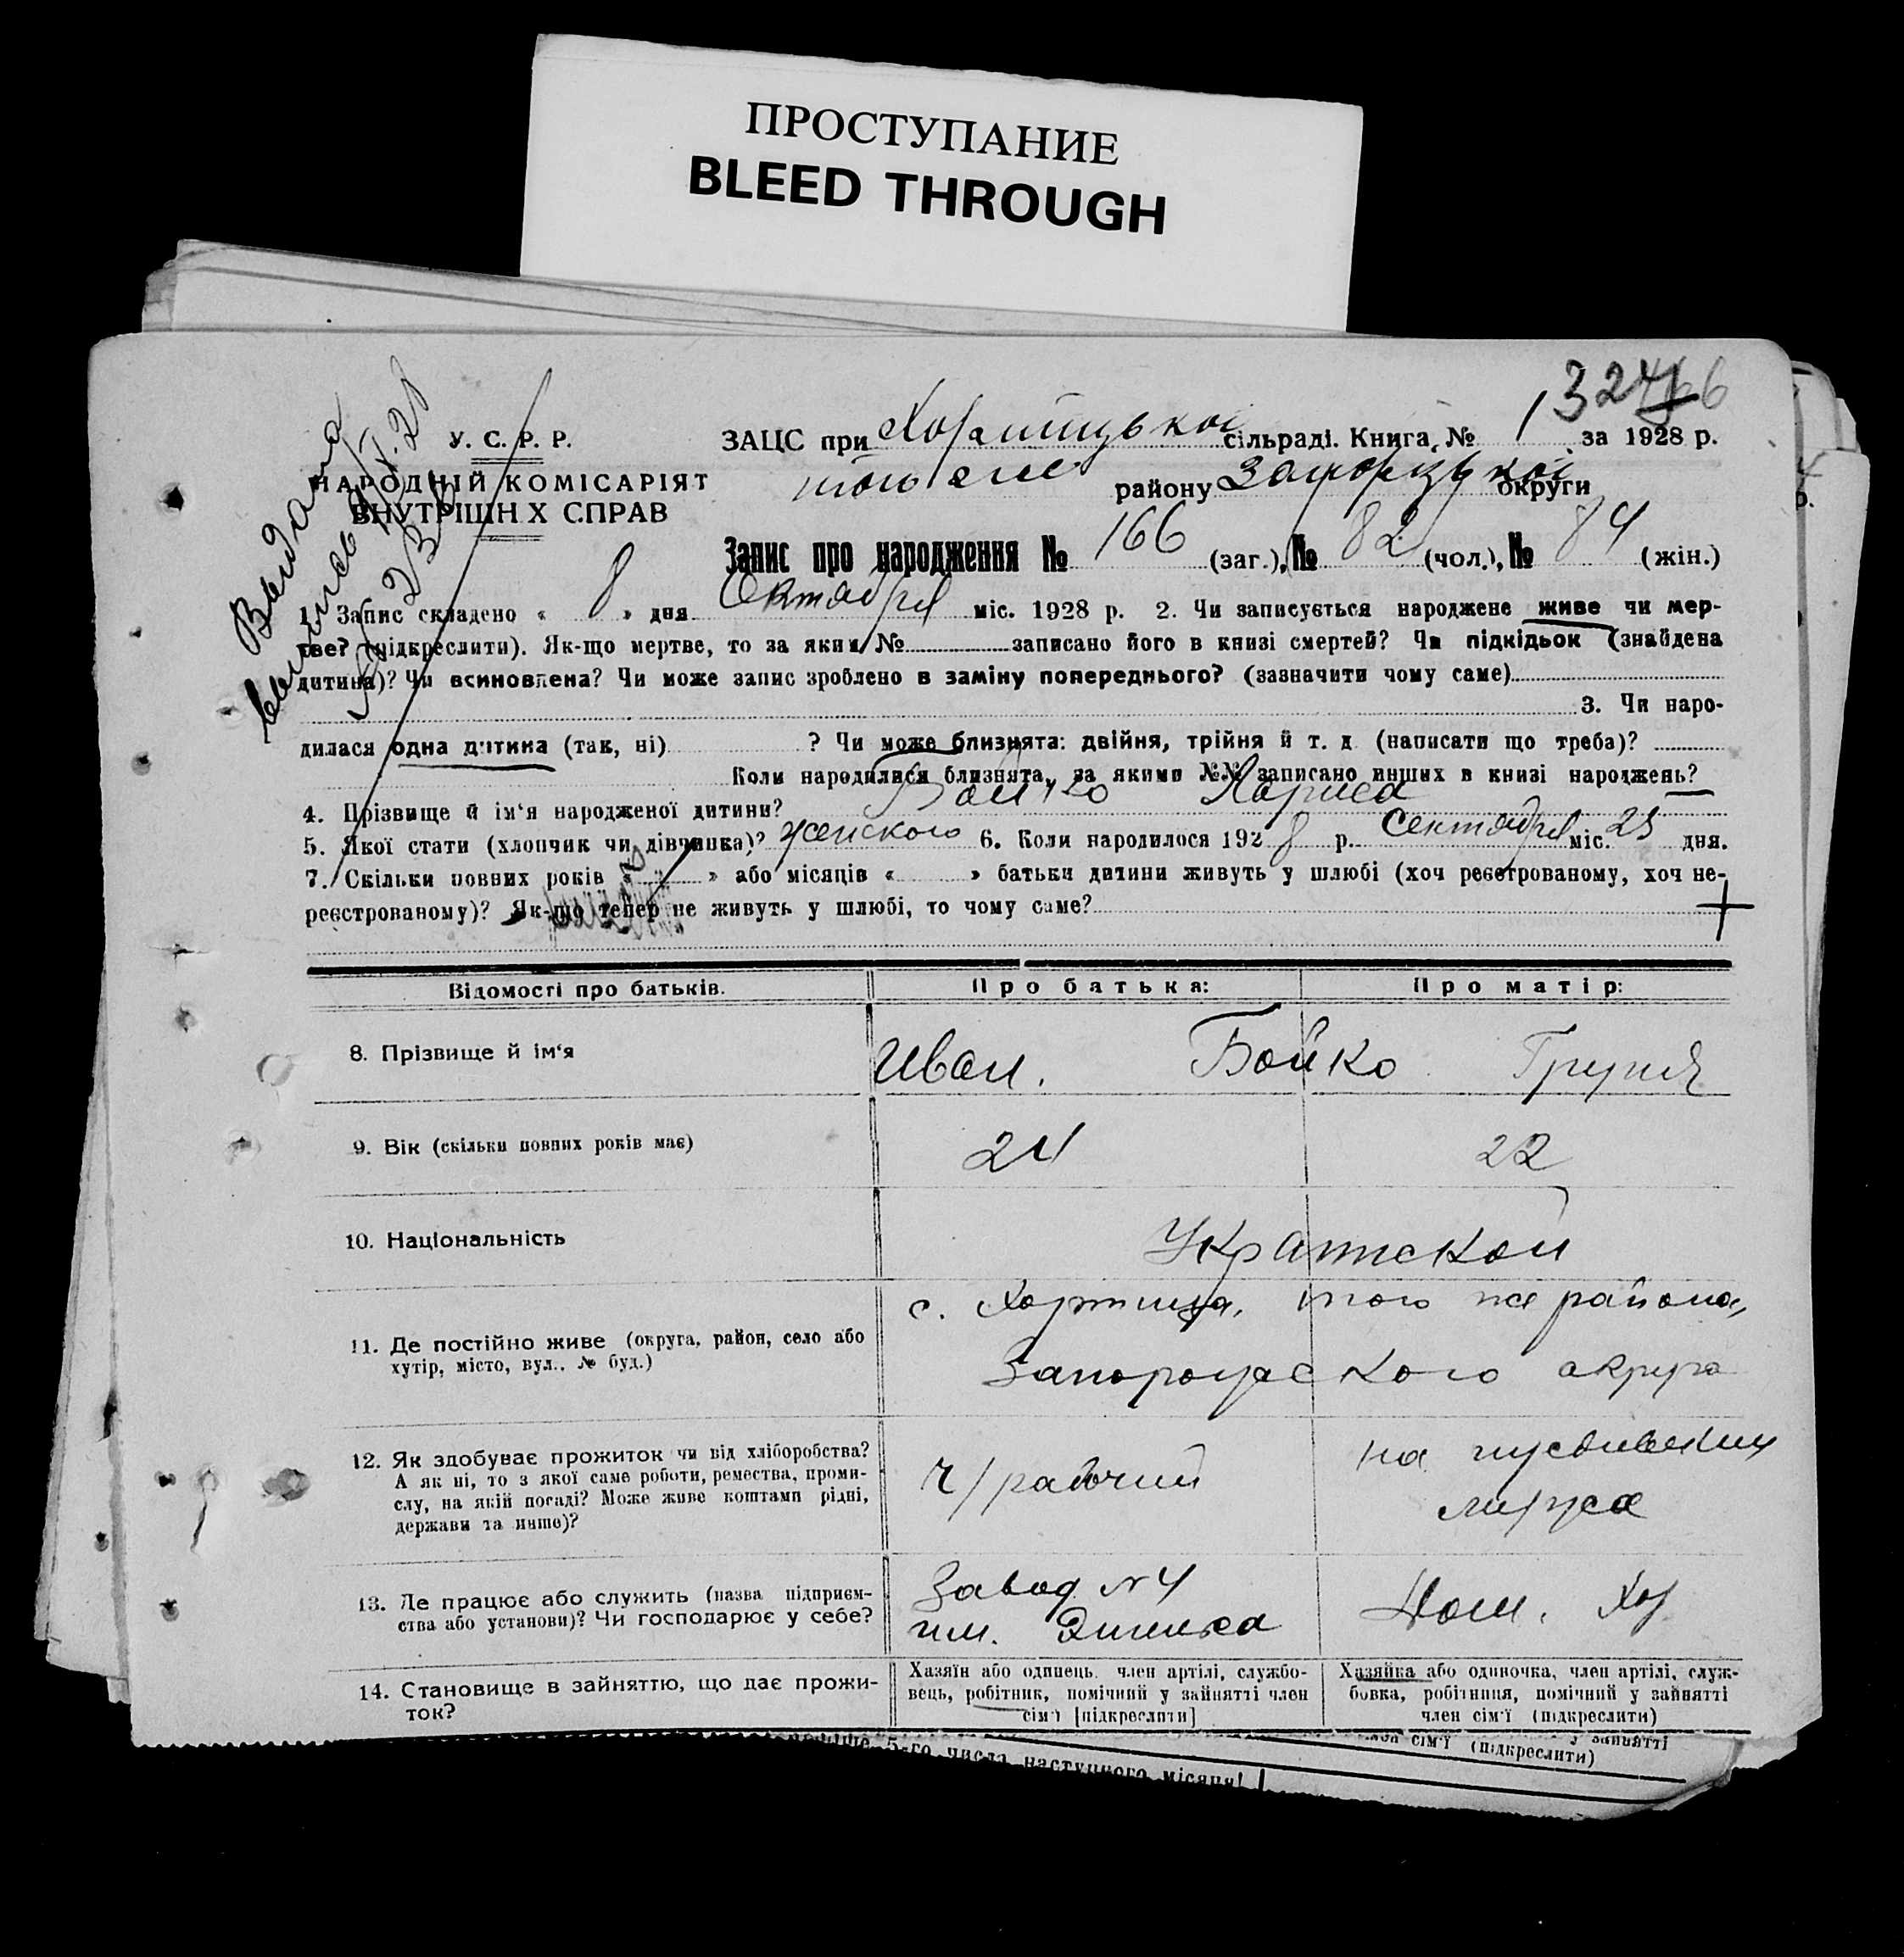 ПРОСТУПАНИЕ
BLEED THROUGH
У. С. Р. Р.
НАРОДНІЙ КОМІСАРІЯТ
ВНУТРІШН Х СПРАВ
Выдана
выпись
ЗАЦС при Хортицькой сільраді. Книга № 1 за 1928 р.
того же району округи
Запис про народження № 166 (заг.), № 82 (чол.), № 84 (жін.)
1. Запис складено « 8 » дня Октября міс. 1928 р. 2. Чи записується народжене живе чи мер-
тве? (підкреслити). Як-що мертве, то за яким № записано його в книзі смертей? Чи підкідьок (знайдена
дитина)? Чи всиновлена? Чи може запис зроблено в заміну попереднього? (зазначити чому саме)
3. Чи наро-
дилася одна дитина (так, ні) ? Чи може близнята: двійня, трійня й т. д. (написати що треба)?
Коли народилися близнята, за якими №№ записано инших в книзі народжень?
4. Прізвище й ім'я народженої дитини? Бойко Лариса
5. Якої стати (хлопчик чи дівчинка)? женского 6. Коли народилося 1928 р. Сентября міс. 25 дня.
7. Скільки повних років « » або місяців « » батьки дитини живуть у шлюбі (хоч реєстрованому, хоч не-
реєстрованому)? Як-що тепер не живуть у шлюбі, то чому саме?
Відомості про батьків. Про батька: Про матір:
8. Прізвище й ім'я Иван. Бойко Груня
9. Вік (скільки повних років має) 24 22
10. Національність
11. Де постійно живе (округа, район, село або
хутір, місто, вул., № буд.)
с. Хортица, того же района,
Запорожского округа
12. Як здобуває прожиток чи від хліборобства?
А як ні, то з якої саме роботи, ремества, проми-
слу, на якій посаді? Може живе коштами рідні,
держави та инше)?
ч/рабочий
на иждивении
мужа
13. Де працює або служить (назва підприєм-
ства або установи)? Чи господарює у себе?
Завод №4
им. Энгельса
Дом. Хоз
14. Становище в зайняттю, що дає прожи-
ток?
Хазяїн або одинець, член артілі, службо-
вець, робітник, помічний у зайнятті член
сім'ї [підкреслити]
Хазяйка або одиночка, член артілі, служ-
бовка, робітниця, помічний у зайнятті
член сім'ї (підкреслити)
сім'ї (підкреслити)
5-го числа наступного місяця!